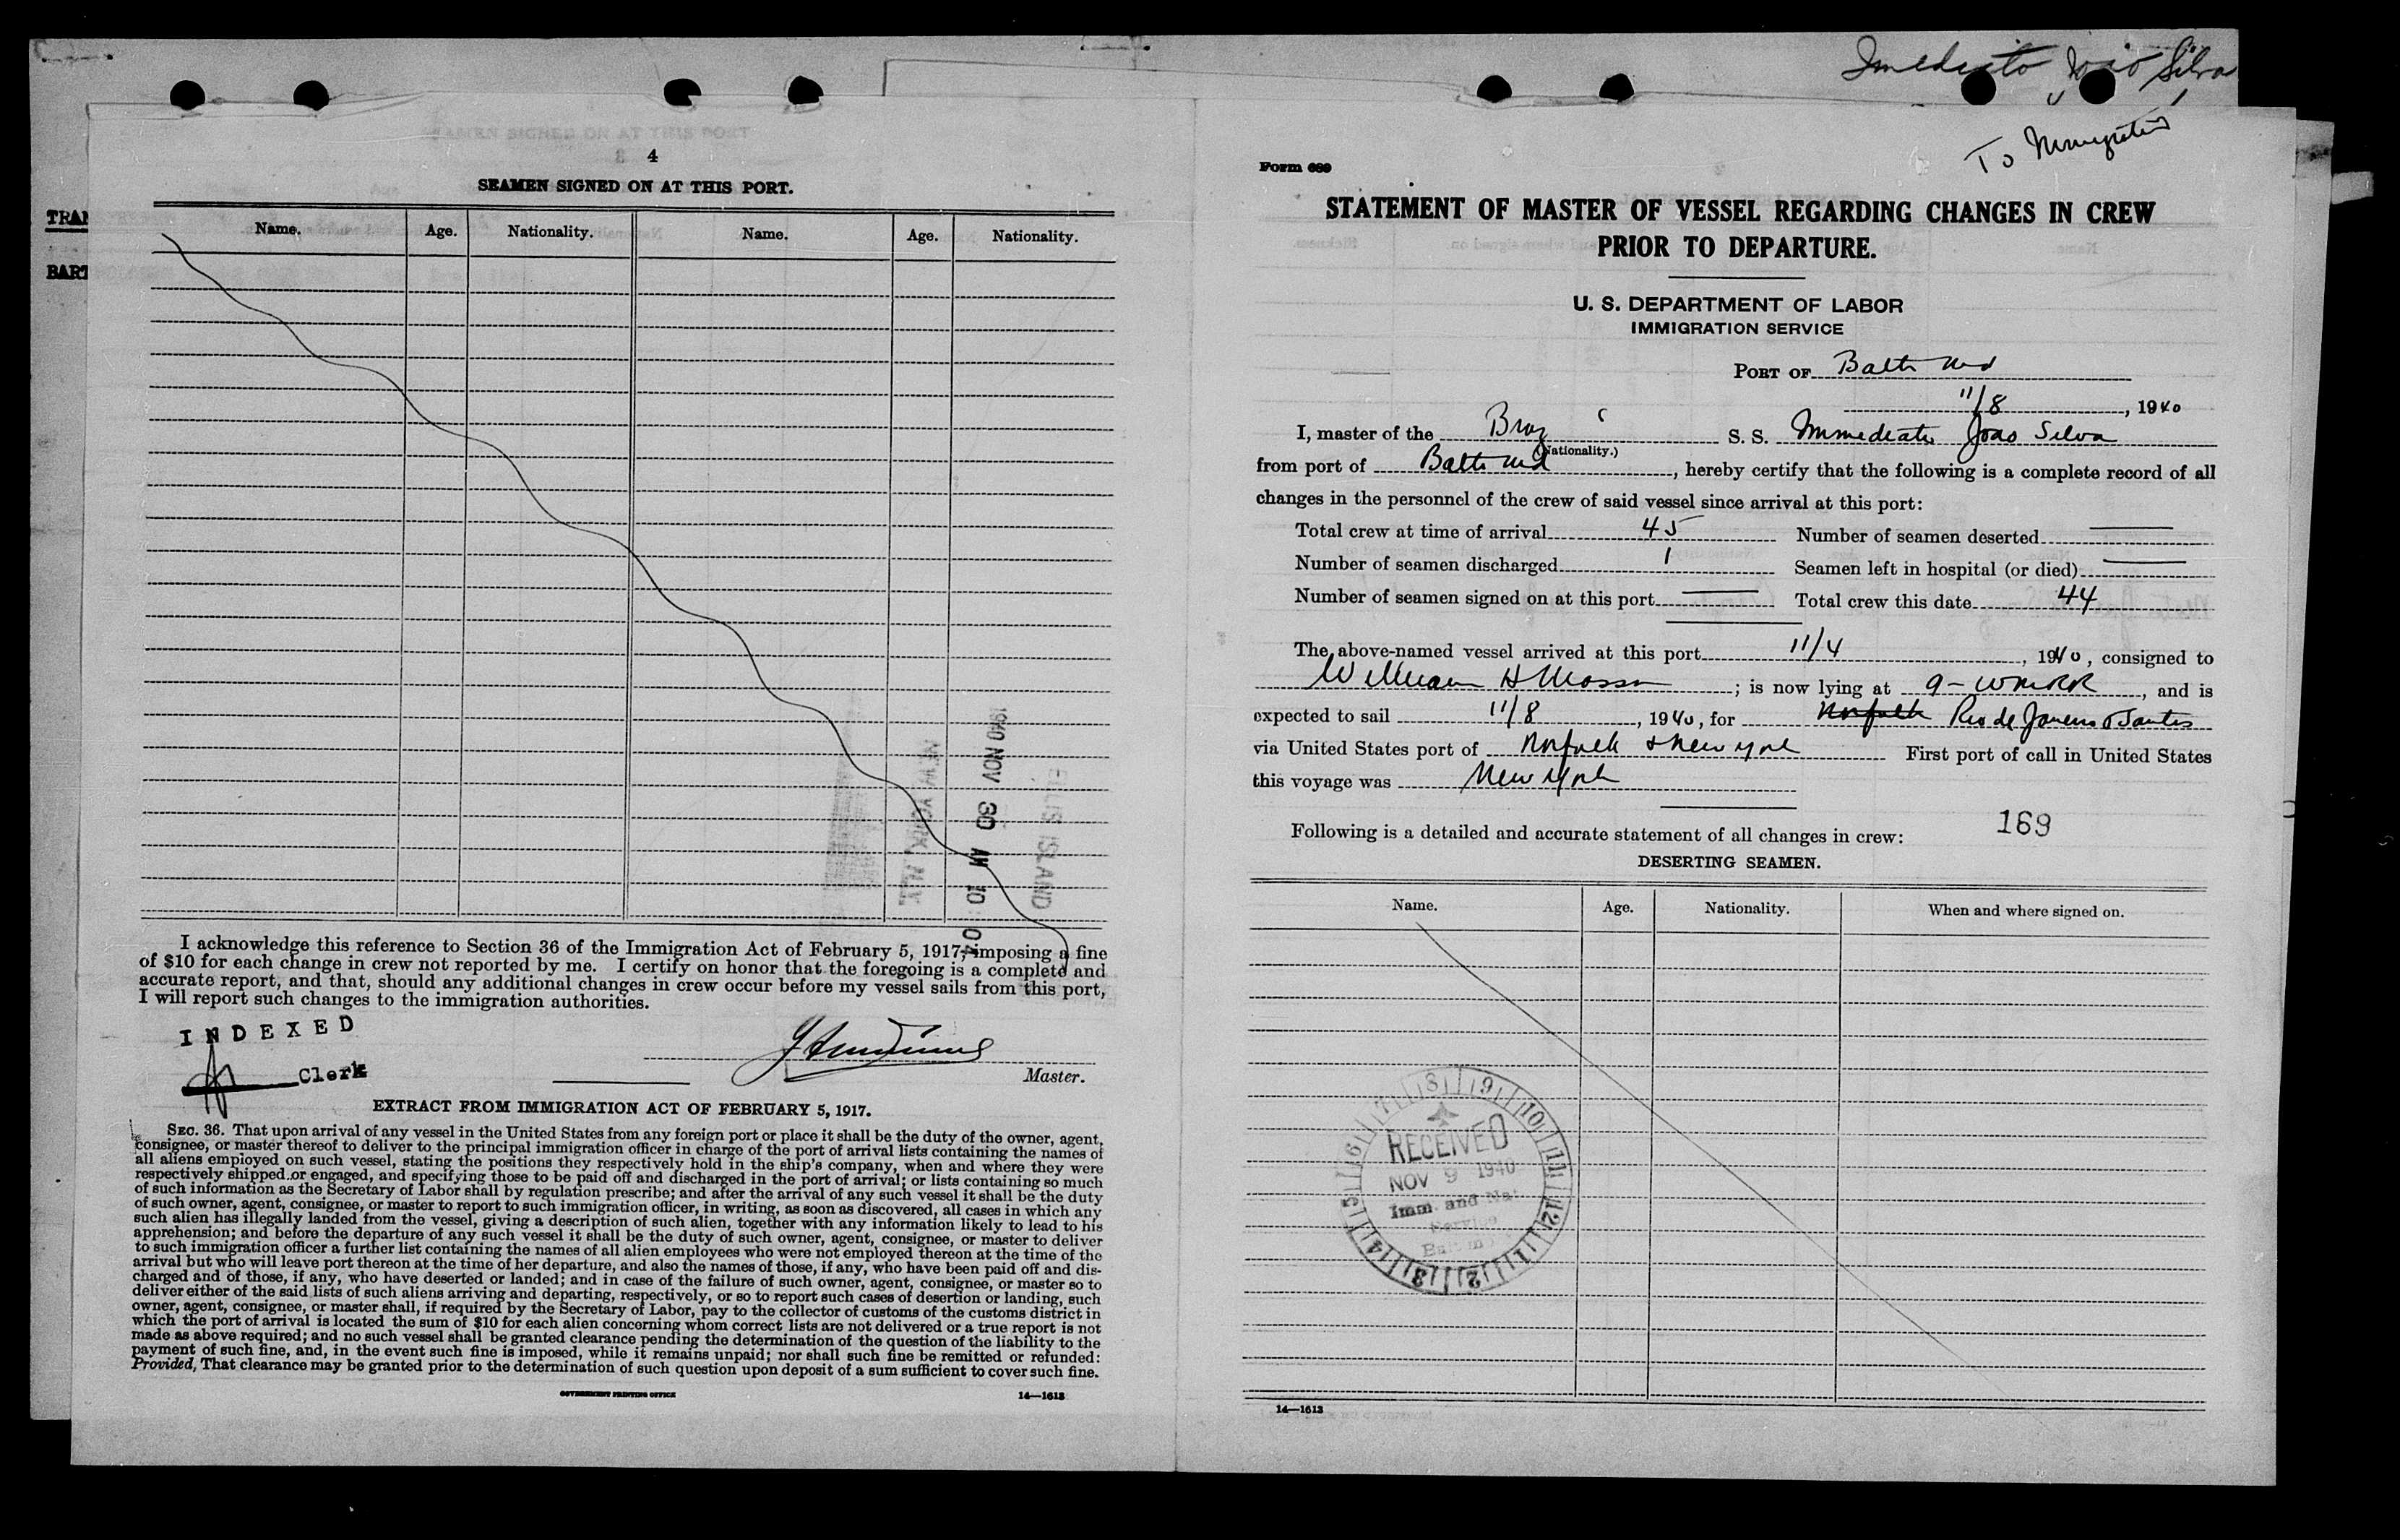 4
SEAMEN SIGNED ON AT THIS PORT.
Name. Age. Nationality. Name. Age. Nationality.
TRAN
BART
1940 NOV 30 AM 10 04
ELLIS ISLAND
NEW YORK N.Y.
I acknowledge this reference to Section 36 of the Immigration Act of February 5, 1917, imposing a fine
of $10 for each change in crew not reported by me. I certify on honor that the foregoing is a complete and
accurate report, and that, should any additional changes in crew occur before my vessel sails from this port,
I will report such changes to the immigration authorities.
INDEXED
Clerk
Master.
EXTRACT FROM IMMIGRATION ACT OF FEBRUARY 5, 1917.
SEC. 36. That upon arrival of any vessel in the United States from any foreign port or place it shall be the duty of the owner, agent,
consignee, or master thereof to deliver to the principal immigration officer in charge of the port of arrival lists containing the names of
all aliens employed on such vessel, stating the positions they respectively hold in the ship's company, when and where they were
respectively shipped or engaged, and specifying those to be paid off and discharged in the port of arrival; or lists containing so much
of such information as the Secretary of Labor shall by regulation prescribe; and after the arrival of any such vessel it shall be the duty
of such owner, agent, consignee, or master to report to such immigration officer, in writing, as soon as discovered, all cases in which any
such alien has illegally landed from the vessel, giving a description of such alien, together with any information likely to lead to his
apprehension; and before the departure of any such vessel it shall be the duty of such owner, agent, consignee, or master to deliver
to such immigration officer a further list containing the names of all alien employees who were not employed thereon at the time of the
arrival but who will leave port thereon at the time of her departure, and also the names of those, if any, who have been paid off and dis-
charged and of those, if any, who have deserted or landed; and in case of the failure of such owner, agent, consignee, or master so to
deliver either of the said lists of such aliens arriving and departing, respectively, or so to report such cases of desertion or landing, such
owner, agent, consignee, or master shall, if required by the Secretary of Labor, pay to the collector of customs of the customs district in
which the port of arrival is located the sum of $10 for each alien concerning whom correct lists are not delivered or a true report is not
made as above required; and no such vessel shall be granted clearance pending the determination of the question of the liability to the
payment of such fine, and, in the event such fine is imposed, while it remains unpaid; nor shall such fine be remitted or refunded:
Provided, That clearance may be granted prior to the determination of such question upon deposit of a sum sufficient to cover such fine.
GOVERNMENT PRINTING OFFICE 14—1613
Imediato João Silva
To Immigration
Form 689
STATEMENT OF MASTER OF VESSEL REGARDING CHANGES IN CREW
PRIOR TO DEPARTURE.
U. S. DEPARTMENT OF LABOR
IMMIGRATION SERVICE
PORT OF Balto Md
11/8, 1940
I, master of the Braz S. S. Immediato Joao Silva
(Nationality.)
from port of Balto Md, hereby certify that the following is a complete record of all
changes in the personnel of the crew of said vessel since arrival at this port:
Total crew at time of arrival 45 Number of seamen deserted
Number of seamen discharged 1 Seamen left in hospital (or died)
Number of seamen signed on at this port Total crew this date 44
The above-named vessel arrived at this port 11/4, 1940, consigned to
William H ; is now lying at 9- WMRR, and is
expected to sail 11/8, 1940, for Norfolk Rio de Janeiro & Santos
via United States port of Norfolk & New York First port of call in United States
this voyage was New York
169
Following is a detailed and accurate statement of all changes in crew:
DESERTING SEAMEN.
Name. Age. Nationality. When and where signed on.
RECEIVED
NOV 9 1940
Imm. and Nat
Service
14—1613